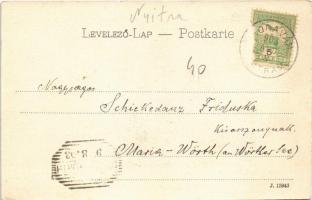 Nyitra
LEVELEZŐ-LAP — Postkarte
40
Nagyságos
Schickedanz Friduska
kisasszonynak
Maria-Wörth (am Wörther See)
J. 12943